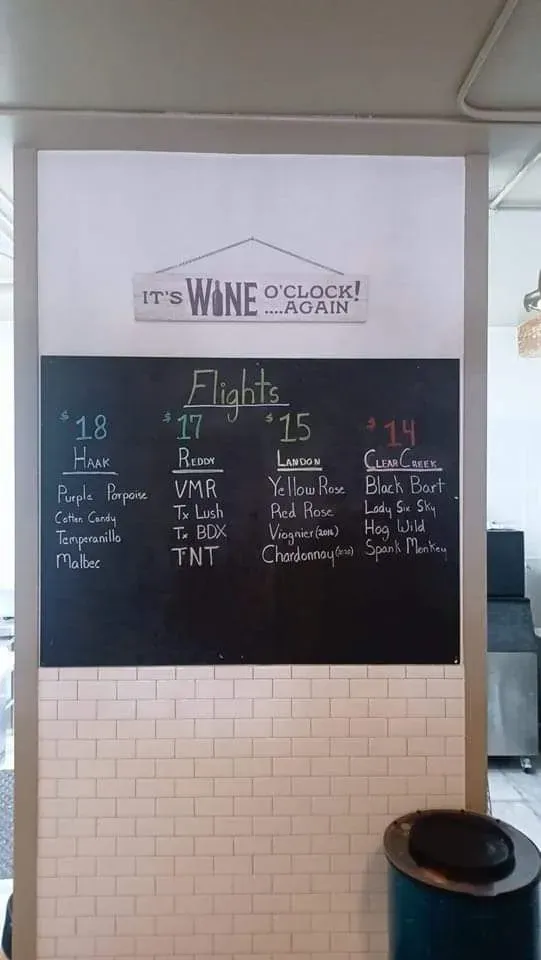 IT'S WINE O'CLOCK!
....AGAIN
Flights
$18
HAAK
Purple Porpoise
Cotton Candy
Temperanillo
Malbec
$17
REDDY
VMR
Tx Lush
Tx BDX
TNT
$15
LANDON
Yellow Rose
Red Rose
Viognier (2016)
Chardonnay
$14
CLEAR CREEK
Black Bart
Lady Six Sky
Hog Wild
Spank Monkey